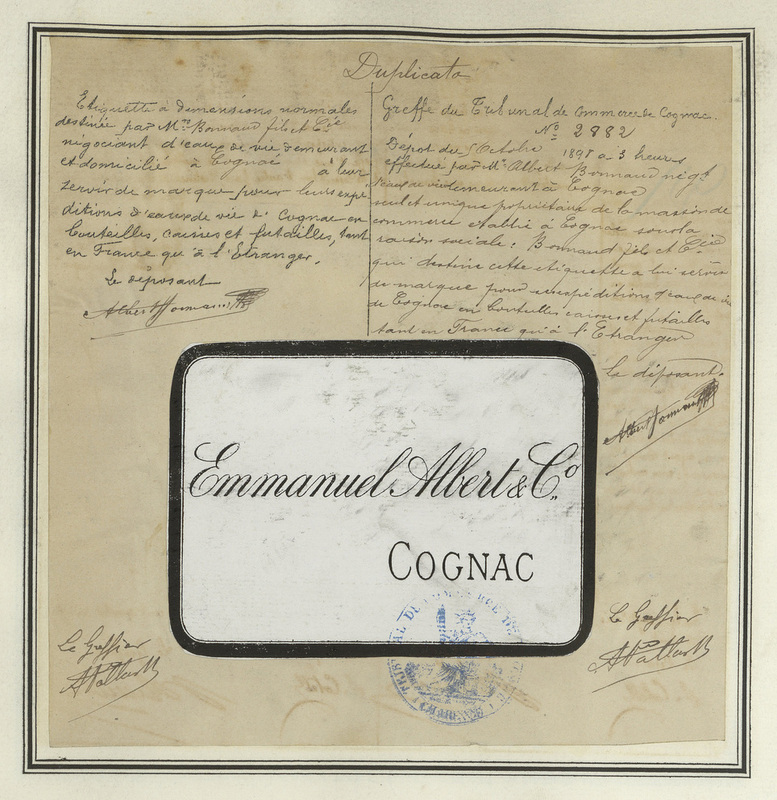 Duplicata
Etiquette à dimensions normales
destinée par Mrs Bonnaud fils et Cie
négociant d'eaux de vie demeurant
et domicilié à Cognac à leur
servir de marque pour leurs expé
ditions d'eaux de vie de Cognac en
bouteilles, caisses et futailles, tant
en France qu'à l'Etranger.
Le déposant
Greffe du Tribunal de Commerce de Cognac.
No 2882
Dépôt du 5 Octobre 1897 à 3 heures
effectué par Mr Albert Bonnaud négt
d'eaux de vie demeurant à Cognac
seul et unique propriétaire de la maison de
commerce établie à Cognac sous la
raison sociale: Bonnaud fils et Cie
qui destine cette étiquette à lui servir
de marque pour ses expéditions d'eaux de vie
de Cognac en bouteilles caisses et futailles
tant en France qu'à l'Etranger
Le déposant.
Emmanuel Albert & Co
COGNAC
TRIBUNAL DU COMMERCE DE
Le Greffier
Le Greffier